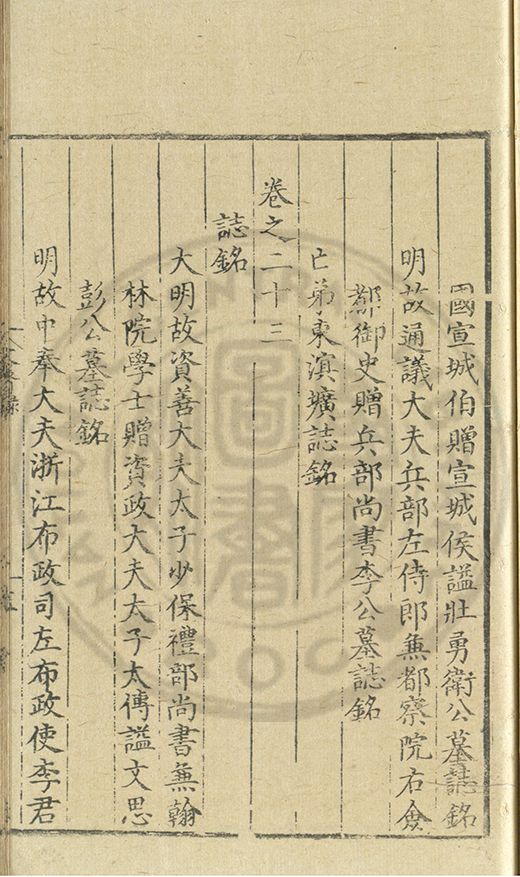 國宣城伯贈宣城侯謚壯勇衛公墓誌銘
明故通議大夫兵部左侍郎兼都察院右僉
都御史贈兵部尚書李公墓誌銘
亡弟東溟壙誌銘
卷之二十三
誌銘
大明故資善大夫太子少保禮部尚書兼翰
林院學士贈資政大夫太子太傅謚文思
彭公墓誌銘
明故中奉大夫浙江布政司左布政使李君